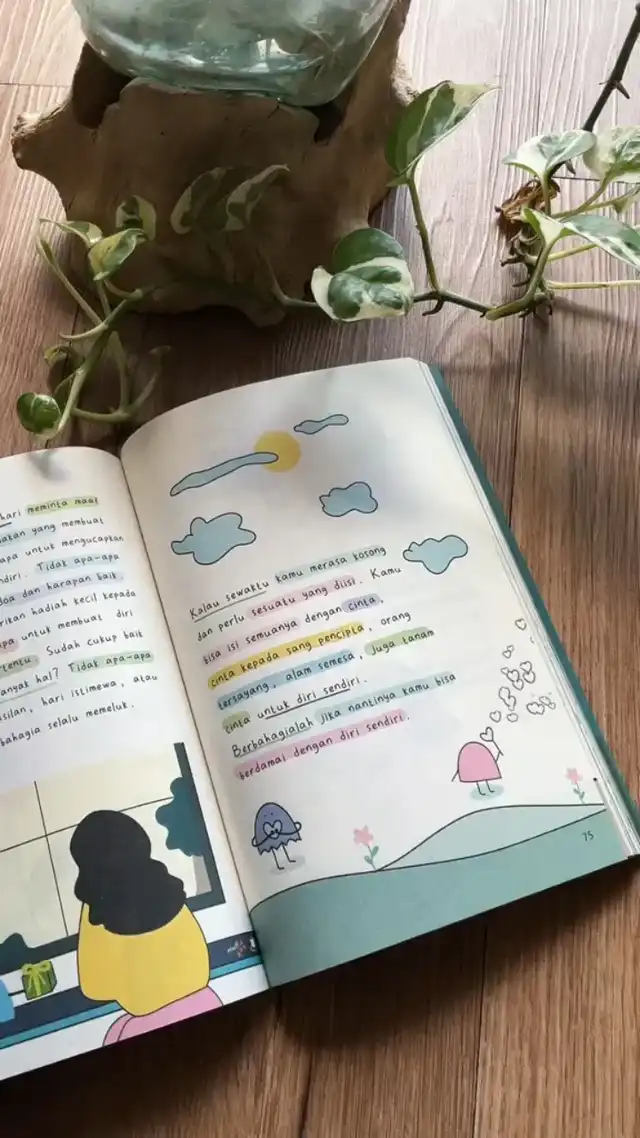 hari meminta maaf
yang membuat
apa untuk mengucapkan
diri. Tidak apa-apa
doa dan harapan baik.
hadiah kecil kepada
untuk membuat diri
Sudah cukup baik
hal? Tidak apa-apa
hari istimewa, atau
bahagia selalu memeluk.
Kalau sewaktu kamu merasa kosong
dan perlu sesuatu yang diisi. Kamu
bisa isi semuanya dengan cinta,
cinta kepada sang pencipta, orang
tersayang, alam semesta, juga tanam
cinta untuk diri sendiri.
Berbahagialah jika nantinya kamu bisa
berdamai dengan diri sendiri.
75